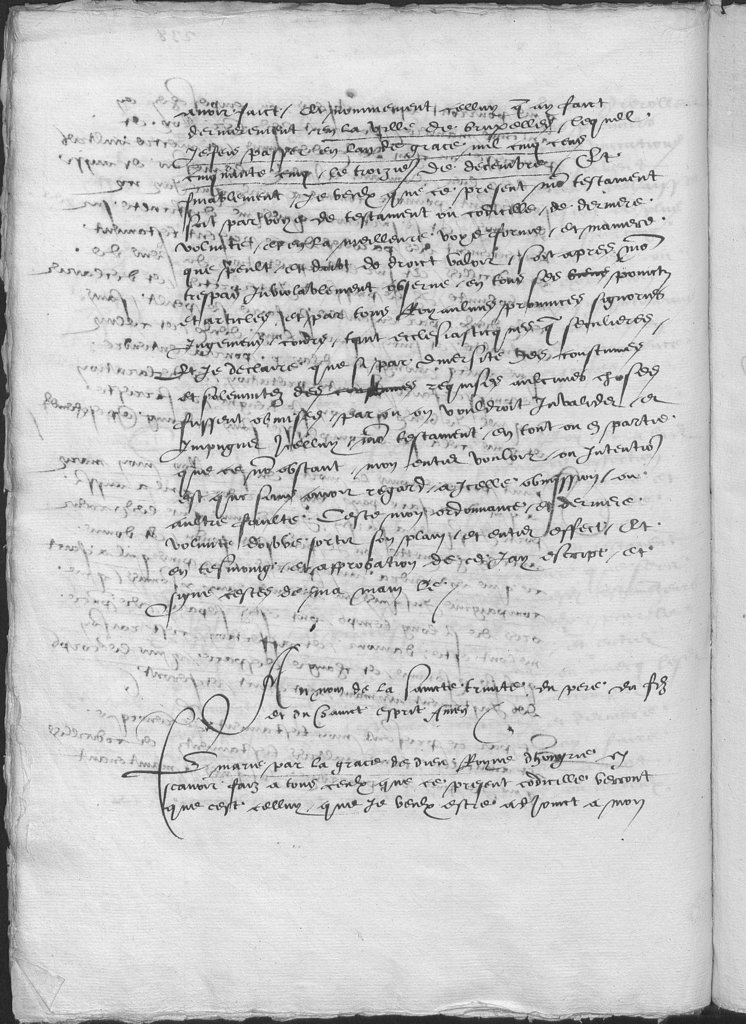 avoir faict, et nommement celluy q̃ ay faict
dernierement en la ville de bruxelles, lequel
Je feis passer en l'an de grace mil cinq cens
cinquante cinq, le troizme de decembre, Et
finablement, Je veulx que ce present mõ testament
soit par voye de testament ou codicille, de derniere
volunte, et en la meilleure voye, forme, et maniere
que peult, et doibt de droict valoir, soit apres mõ
trespas Inviolablement observe, en tous ses poinctz
et articles, et par tous Royaulmes provinces signories
Jugemens, courts, tant ecclesiasticques q̃ seculieres,
Et Je declaire que si par diversite des coustumes
et solemnitez requises aulcunes choses
fussent obmises, par ou on vouldroit Invalider, et
Impugner Icelluy mõ testament, en tout ou ẽ partie
que ce nõ obstant, mon entier vouloir, ou Intentiõ
est que sans avoir regard, a Icelle obmission, ou
aultre faulte, Ceste mon ordonnance, et derniere
volunte doibve sortir son plain, et entier effect, Et
en tesmoing, et approbation de ce Jay escript, et
signe cestes de ma main &c
Au nom de la saincte trinite, du pere du filz
et du sainct esprit Amen
marie par la grace de dieu Royne d'hongrie &c
scavoir faiz a tous ceulx que ce present codicille verront
que cest celluy, que Je veulx estre adjoinct a mon